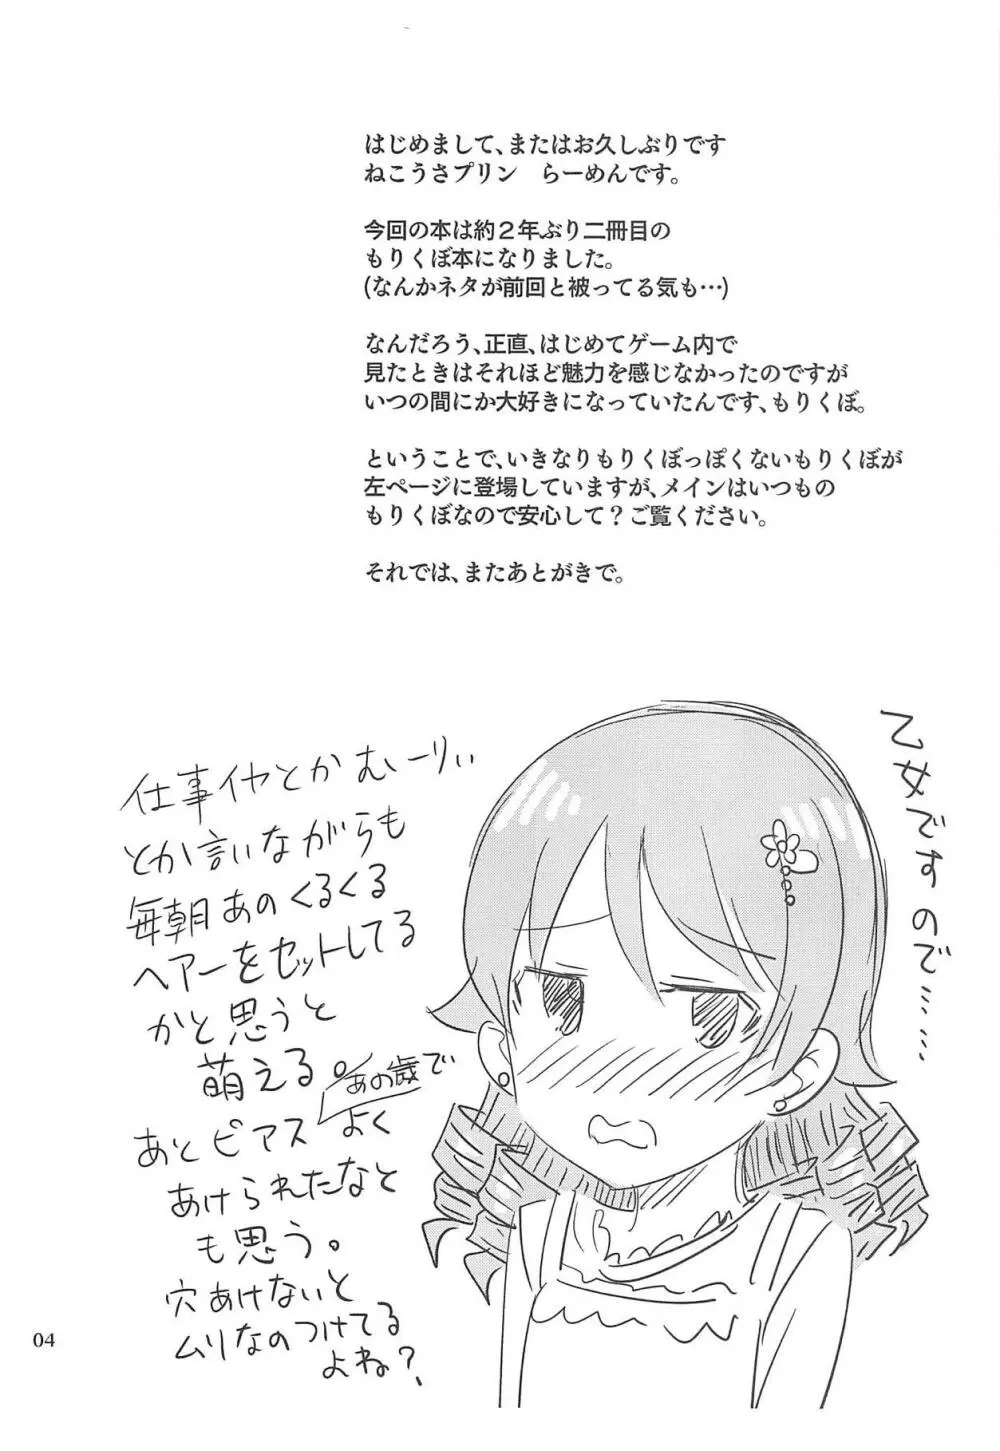 はじめまして、またはお久しぶりです
ねこうさプリン　らーめんです。
今回の本は約２年ぶり二冊目の
もりくぼ本になりました。
(なんかネタが前回と被ってる気も…)
なんだろう、正直、はじめてゲーム内で
見たときはそれほど魅力を感じなかったのですが
いつの間にか大好きになっていたんです、もりくぼ。
ということで、いきなりもりくぼっぽくないもりくぼが
左ページに登場していますが、メインはいつもの
もりくぼなので安心して？ご覧ください。
それでは、またあとがきで。
乙女ですので……
仕事イヤとかむーりぃ
とか言いながらも
毎朝あのくるくる
ヘアーをセットしてる
かと思うと
萌える。
あとピアスよく
あの歳で
あけられたなと
も思う。
穴あけないと
ムリなのつけてる
よね？
04